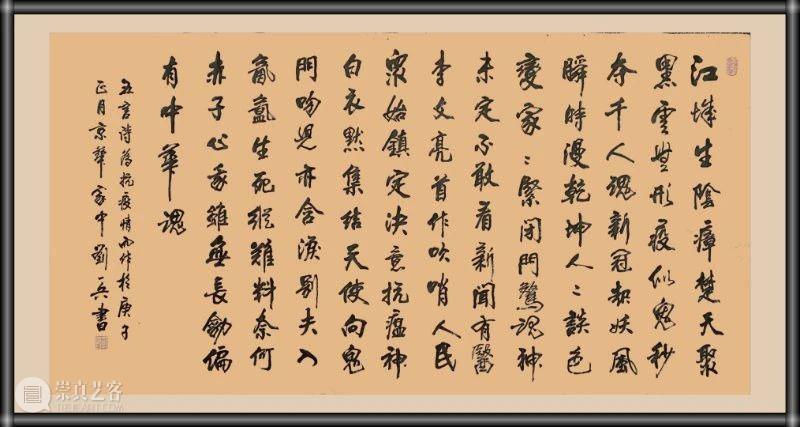 江城生陰瘴楚天聚
黑雲無形疫似鬼秒
夺千人魂新冠如妖風
瞬時漫乾坤人〻談色
變家〻緊閉門驚魂神
未定不敢看新聞有醫
李文亮首作吹哨人民
眾始鎮定決意抗瘟神
白衣默集結天使向鬼
門吻児亦含淚別夫入
氤氳生死縱難料奈何
赤子心我雖無長劍偏
有中華魂
五言詩為抗疫情而作於庚子
正月京華家中劉兵書
崇真艺客